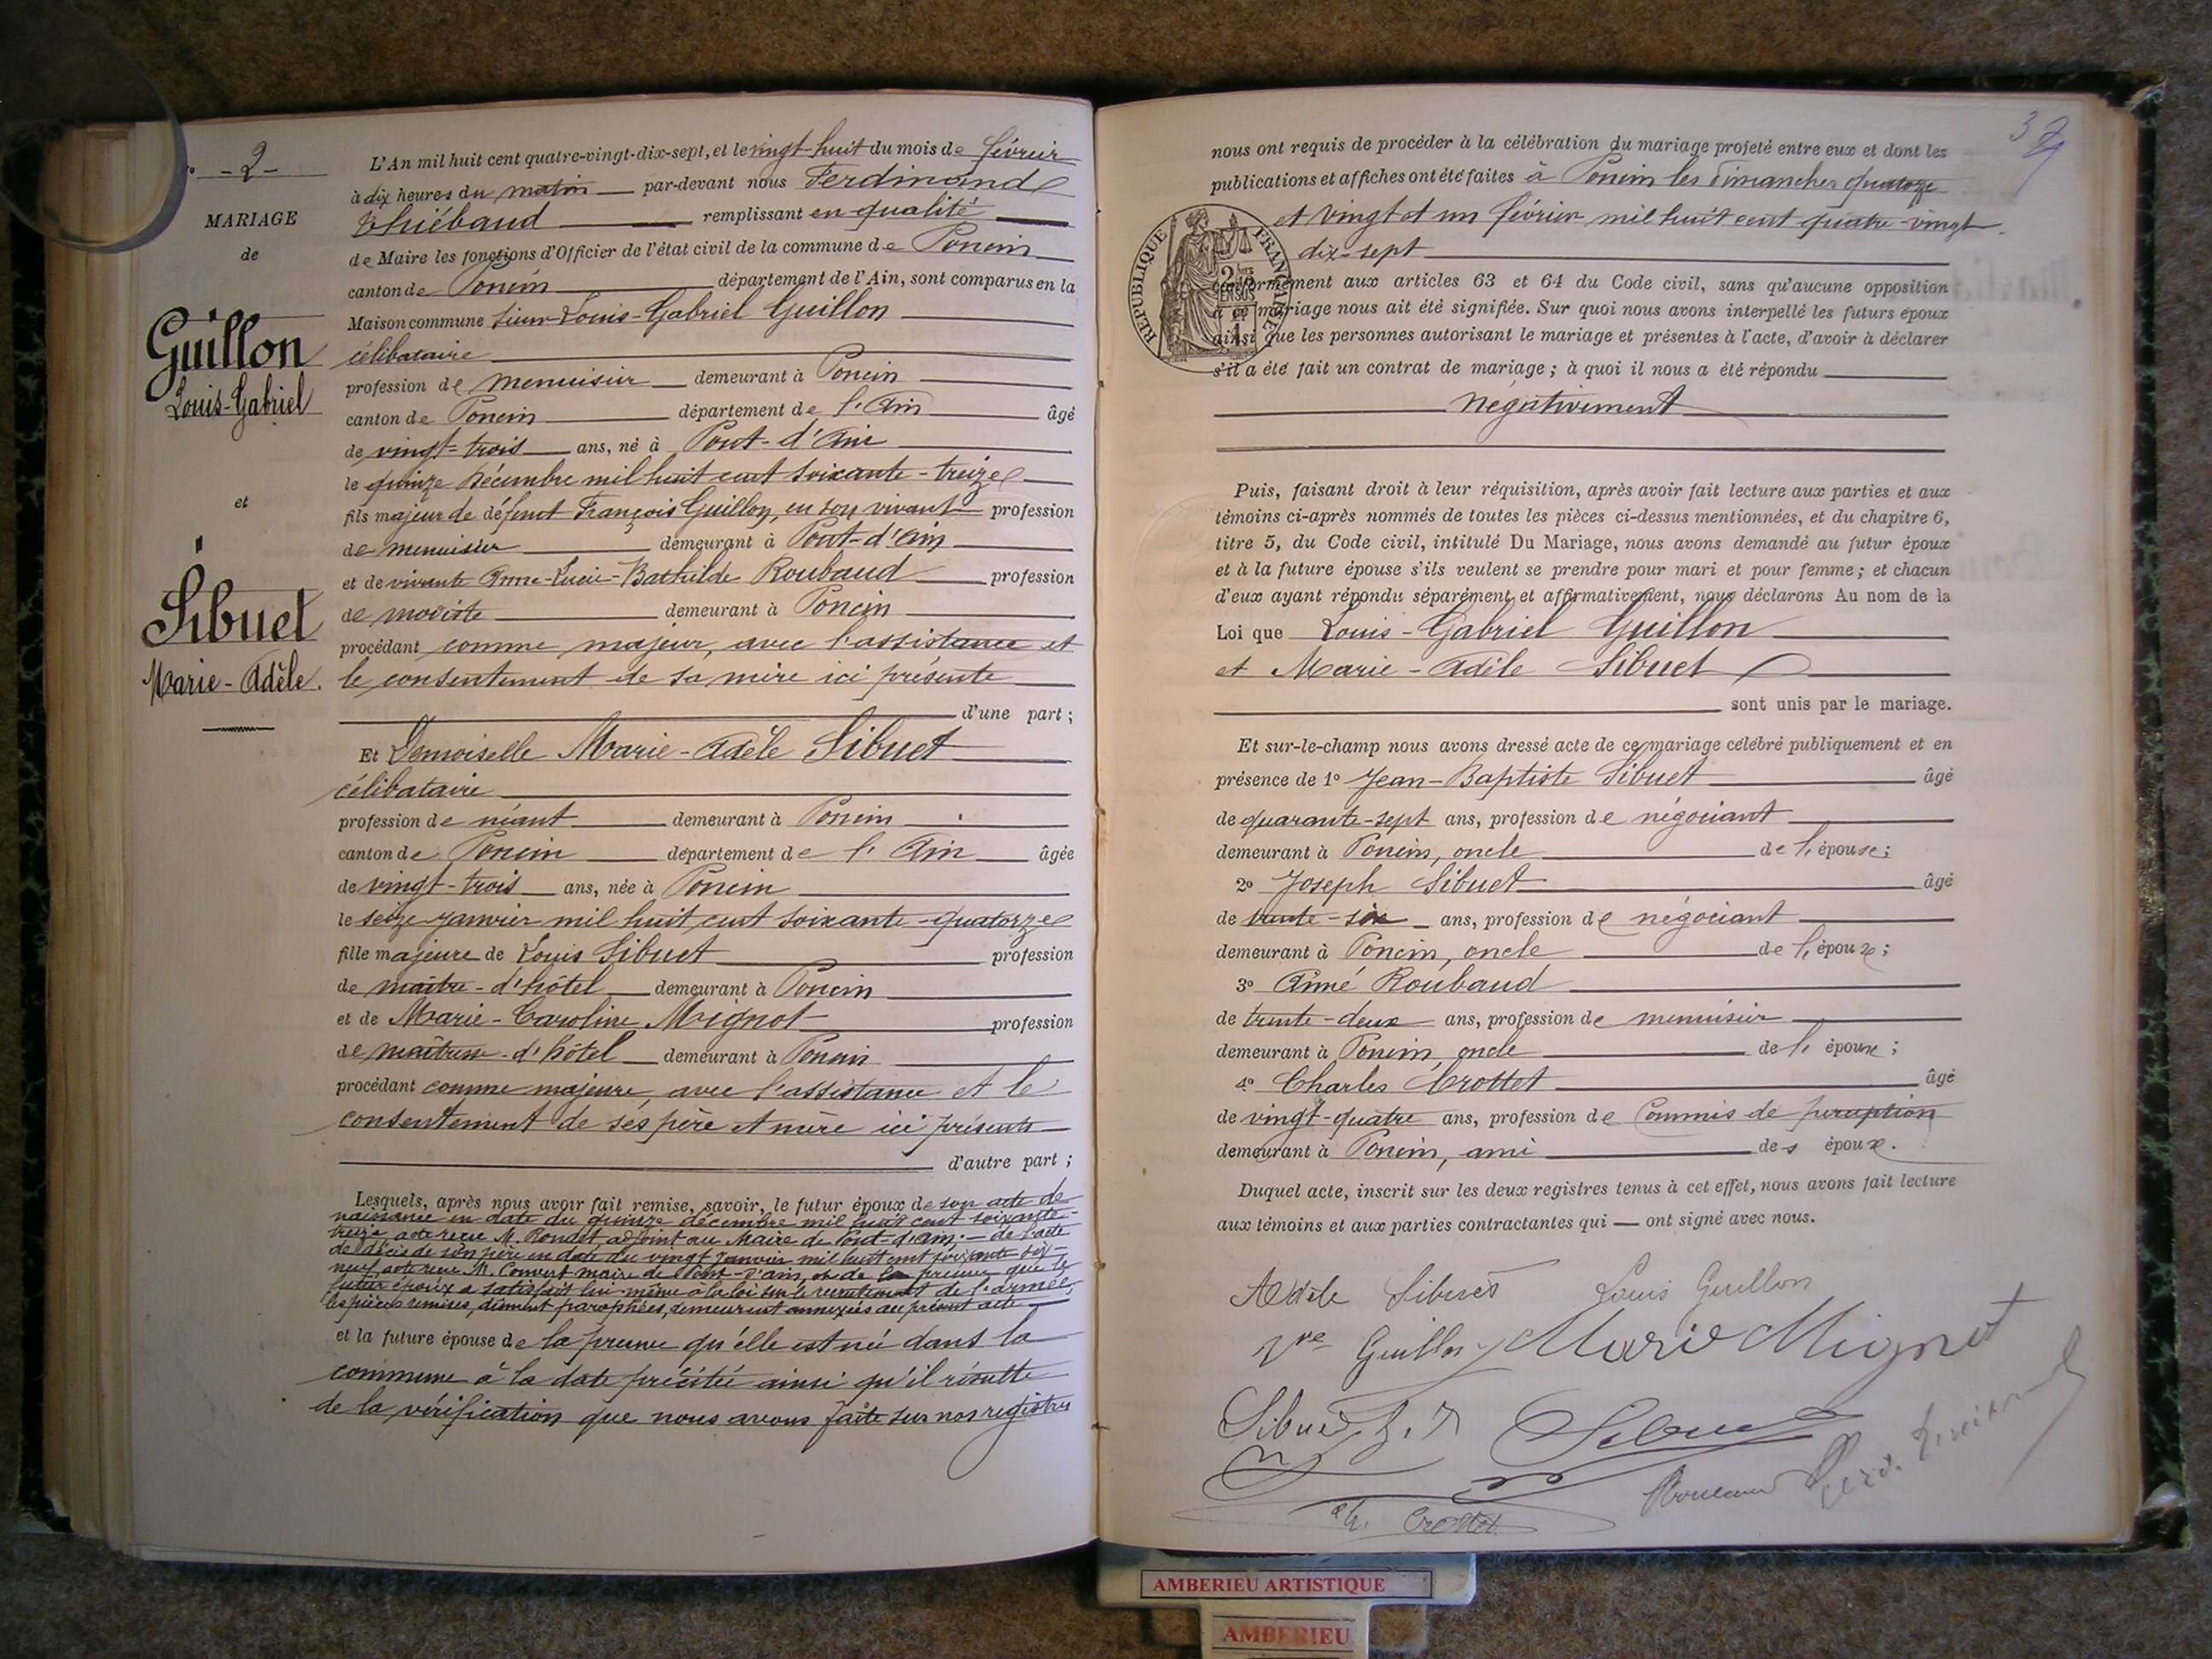 - 2 -
MARIAGE
de
Guillon
Louis-Gabriel
et
Sibuet
Marie-Adèle.
L'An mil huit cent quatre-vingt-dix-sept, et le vingt-huit du mois de février
à dix heures du matin par-devant nous Ferdinand
Thiébaud remplissant en qualité
de Maire les fonctions d'Officier de l'état civil de la commune de Poncin
canton de Poncin département de l'Ain, sont comparus en la
Maison commune Sieur Louis-Gabriel Guillon
célibataire
profession de menuisier demeurant à Poncin
canton de Poncin département de l'Ain âgé
de vingt-trois ans, né à Pont-d'Ain
le quinze Décembre mil huit cent soixante-treize
fils majeur de défunt François Guillon, en son vivant profession
de menuisier demeurant à Pont-d'Ain
et de vivante Anne-Lucie-Bathilde Roubaud profession
de modiste demeurant à Poncin
procédant comme majeur, avec l'assistance et
le consentement de sa mère ici présente
d'une part ;
Et Demoiselle Marie-Adèle Sibuet
célibataire
profession de néant demeurant à Poncin
canton de Poncin département de l'Ain âgée
de vingt-trois ans, née à Poncin
le seize janvier mil huit cent soixante-quatorze
fille majeure de Louis Sibuet profession
de maître-d'hôtel demeurant à Poncin
et de Marie-Caroline Mignot profession
de maîtresse-d'hôtel demeurant à Poncin
procédant comme majeure, avec l'assistance et le
consentement de ses père et mère ici présents
d'autre part ;
Lesquels, après nous avoir fait remise, savoir, le futur époux de son acte de
naissance en date du quinze décembre mil huit cent soixante-
treize acte reçu M. Rondet adjoint au Maire de Pont-d'Ain ; - de l'acte
de décès de son père en date du vingt janvier mil huit cent soixante dix-
neuf acte reçu M. Convert maire de Pont-d'Ain, et de la preuve que le
futur époux a satisfait lui-même à la loi sur le recrutement de l'armée,
les pièces remises, dûment paraphées, demeurent annexées au présent acte
et la future épouse de la preuve qu'elle est née dans la
commune à la date précitée ainsi qu'il résulte
de la vérification que nous avons faite sur nos registres
nous ont requis de procéder à la célébration du mariage projeté entre eux et dont les
publications et affiches ont été faites à Poncin les Dimanches quatorze
et vingt et un février mil huit cent quatre-vingt
dix-sept
RÉPUBLIQUE FRANÇAISE
conformément aux articles 63 et 64 du Code civil, sans qu'aucune opposition
à ce mariage nous ait été signifiée. Sur quoi nous avons interpellé les futurs époux
ainsi que les personnes autorisant le mariage et présentes à l'acte, d'avoir à déclarer
s'il a été fait un contrat de mariage ; à quoi il nous a été répondu
négativement
Puis, faisant droit à leur réquisition, après avoir fait lecture aux parties et aux
témoins ci-après nommés de toutes les pièces ci-dessus mentionnées, et du chapitre 6,
titre 5, du Code civil, intitulé Du Mariage, nous avons demandé au futur époux
et à la future épouse s'ils veulent se prendre pour mari et pour femme ; et chacun
d'eux ayant répondu séparément et affirmativement, nous déclarons Au nom de la
Loi que Louis-Gabriel Guillon
et Marie-Adèle Sibuet
sont unis par le mariage.
Et sur-le-champ nous avons dressé acte de ce mariage célébré publiquement et en
présence de 1º Jean-Baptiste Sibuet âgé
de quarante-sept ans, profession de négociant
demeurant à Poncin, oncle de l'épouse ;
2º Joseph Sibuet âgé
de trente-six ans, profession de négociant
demeurant à Poncin, oncle de l'épouse ;
3º Aimé Roubaud
de trente-deux ans, profession de menuisier
demeurant à Poncin, oncle de l'époux ;
4º Charles Crottet âgé
de vingt-quatre ans, profession de Commis de perception
demeurant à Poncin, ami des époux.
Duquel acte, inscrit sur les deux registres tenus à cet effet, nous avons fait lecture
aux témoins et aux parties contractantes qui — ont signé avec nous.
Adèle Sibuet Louis Guillon
Vve Guillon Marie Mignot
Sibuet Sibuet
Ch. Crottet
AMBERIEU ARTISTIQUE
AMBERIEU